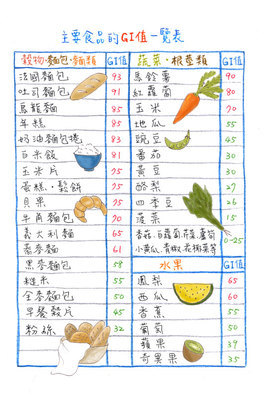 主要食品的GI值一覽表
穀物·麵包·麵類 GI值
法國麵包 93
吐司麵包 91
烏龍麵 85
年糕 85
奶油麵包捲 83
白米飯 81
玉米片 75
蛋糕·鬆餅 75
貝果 75
牛角麵包 70
義大利麵 65
蕎麥麵 61
黑麥麵包 58
糙米 55
全麥麵包 50
早餐穀片 45
粉絲 32
蔬菜·根莖類 GI值
馬鈴薯 90
紅蘿蔔 80
玉米 70
地瓜 55
豌豆 45
番茄 30
黃豆 30
酪梨 27
四季豆 26
菠菜 15
香菇·白蘿蔔·芹菜·蘆筍
小黃瓜·青椒·花椰菜等 0-25
水果 GI值
鳳梨 65
西瓜 60
香蕉 55
葡萄 50
蘋果 39
奇異果 35